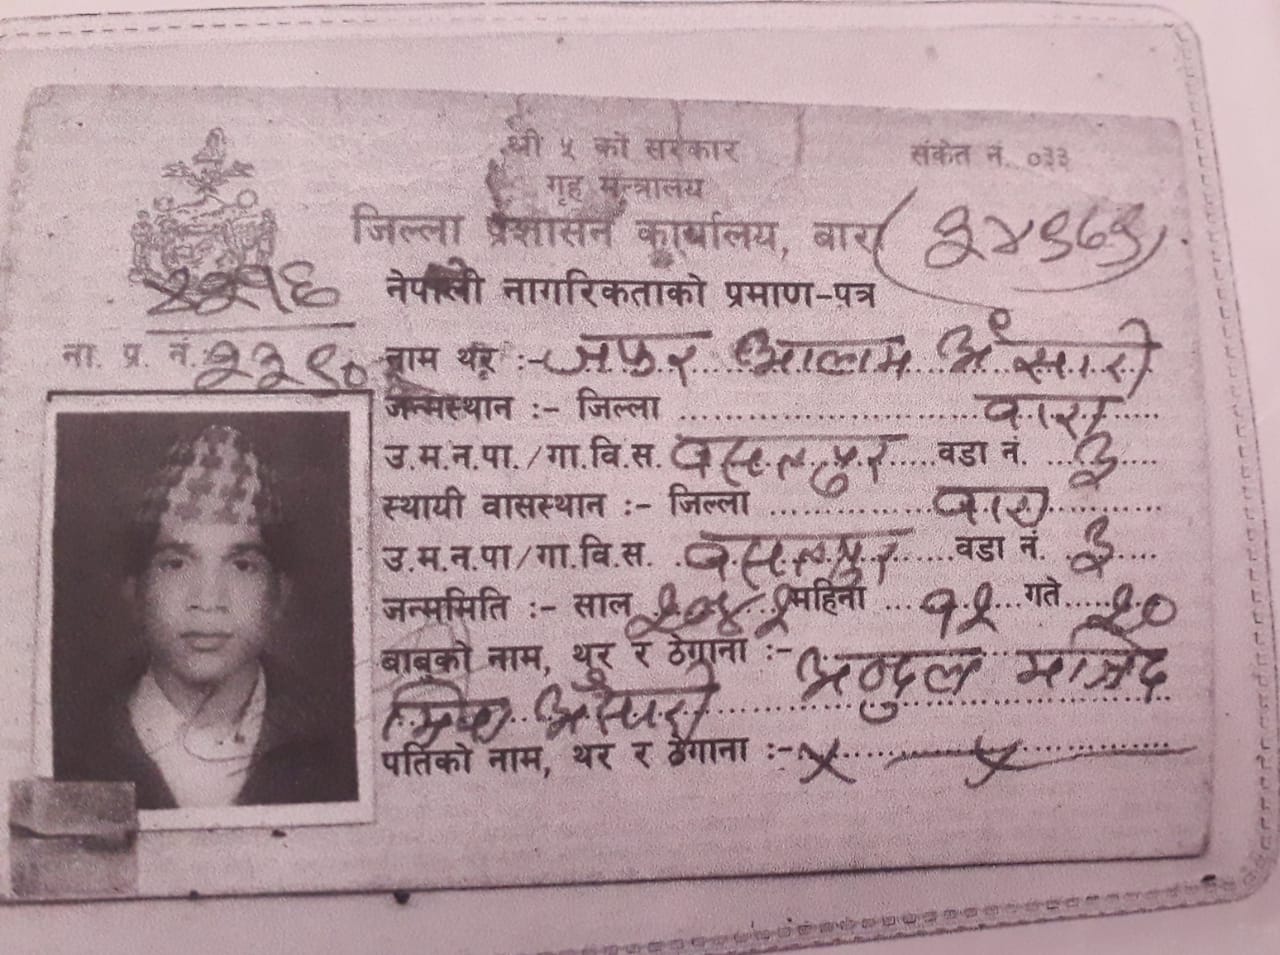 श्री ५ को सरकार
संकेत नं. ०३३
गृह मन्त्रालय
जिल्ला प्रशासन कार्यालय, बारा
नेपाली नागरिकताको प्रमाण-पत्र
ना. प्र. नं. २३९०
नाम थर :- जफुर आलाम अंसारी
जन्मस्थान :- जिल्ला बारा
उ.म.न.पा./गा.वि.स. वडा नं. ३
स्थायी वासस्थान :- जिल्ला बारा
उ.म.न.पा/गा.वि.स. वडा नं. ३
जन्ममिति :- साल २०४२ महिना १२ गते २०
बाबुको नाम, थर र ठेगाना :- अब्दुल माजिद
मिया अंसारी
पतिको नाम, थर र ठेगाना :- x x